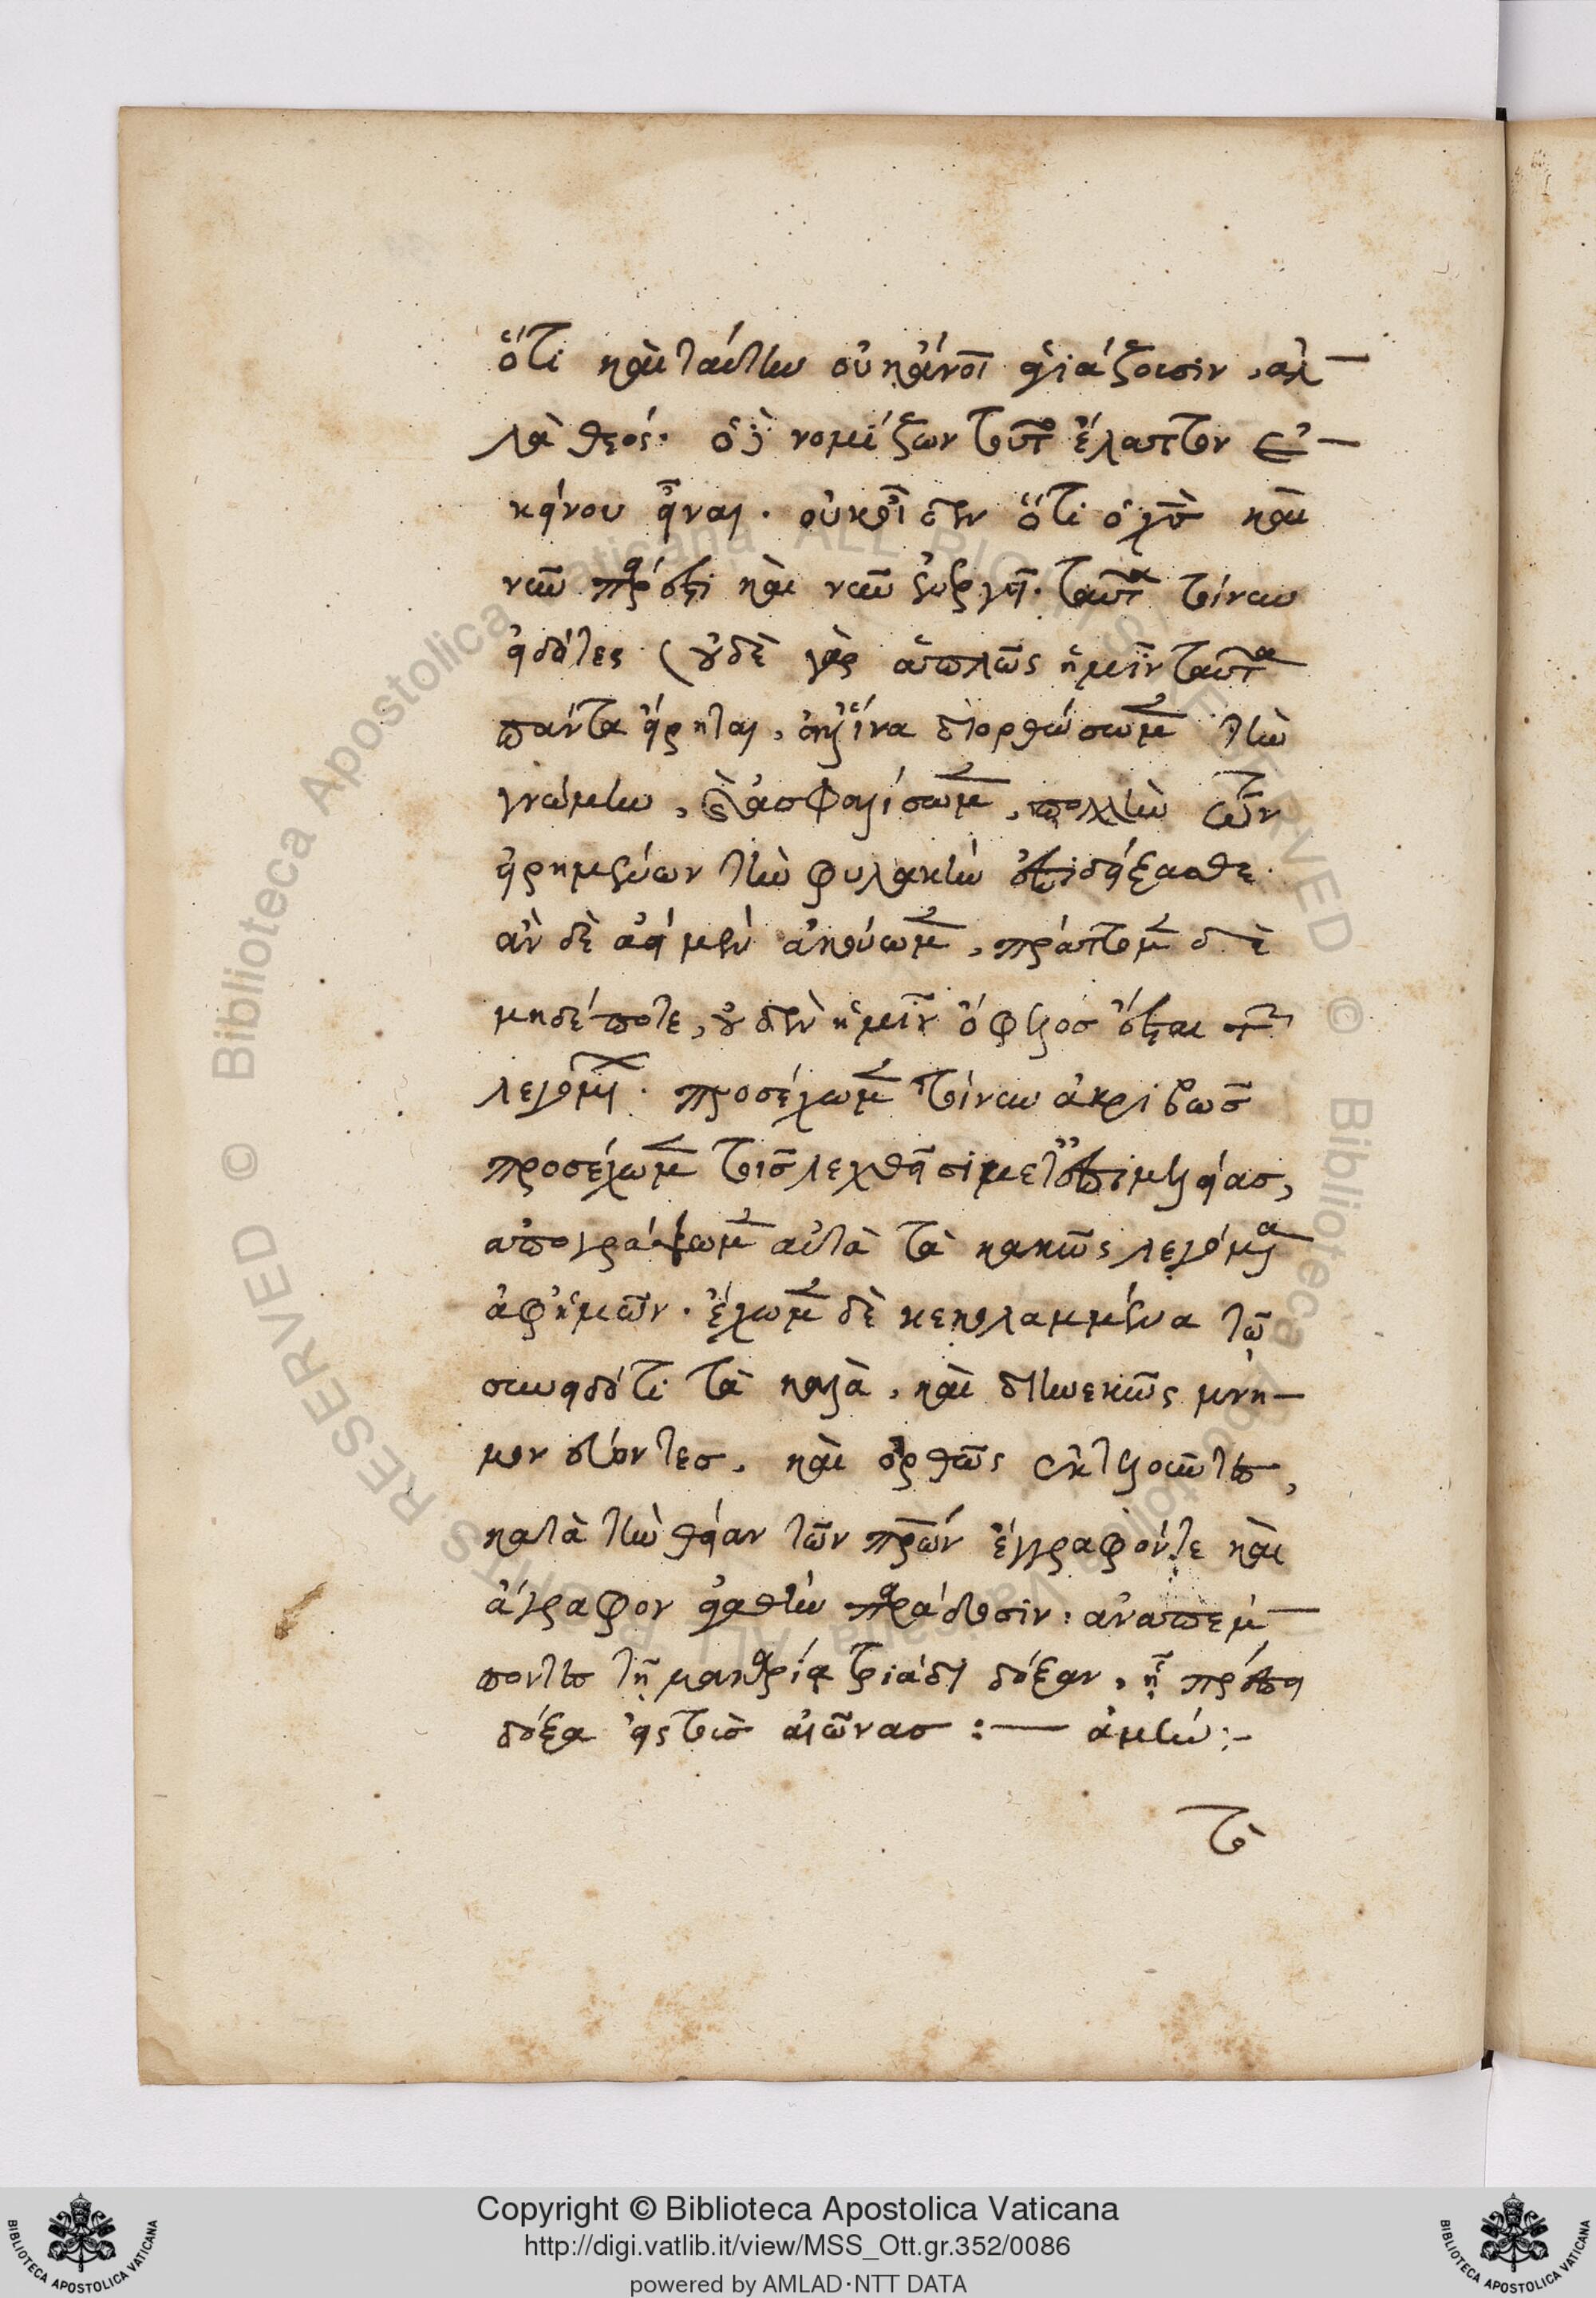 ὅτι καὶ ταύτην οὐκ ἄνοι ἁγιάζουσιν, ἀλ-
λὰ θεός. ὁ δὲ νομίζων τοῦτο ἔλαττον ἐ-
κείνου εἶναι. οὐκ οἶδεν ὅτι ὁ χς καὶ
νῦν πάρεστι καὶ νῦν ἐνεργεῖ. ταῦτα τοίνυν
εἰδότες (οὐδὲ γὰρ ἁπλῶς ἡμῖν ταῦτα
πάντα εἴρηται, ἀλλ' ἵνα διορθώσωμεν τὴν
γνώμην, καὶ ἀσφαλίσωμεν, πολλὴν τῶν
εἰρημένων τὴν φυλακὴν ἐπιδείξασθε.
ἂν δὲ ἀεὶ μὲν ἀκούωμεν, πράττωμεν δὲ
μηδέποτε, οὐδὲν ἡμῖν ὄφελος ἔσται τῶν
λεγομένων. προσέχωμεν τοίνυν ἀκριβῶς
προσέχωμεν τοῖς λεχθεῖσι μετ' ἐπιμελείας,
ἀπογράψωμεν αὐτὰ τὰ κακῶς λεγόμενα
ἀφ' ἡμῶν. ἔχωμεν δὲ κεκολαμμένα τῷ
συνειδότι τὰ καλὰ, καὶ διηνεκῶς μνη-
μονεύοντες, καὶ ὀρθῶς ἐκτελοῦντες,
κατὰ τὴν θείαν τῶν πρων ἔγγραφόν τε καὶ
ἄγραφον παράδοσιν: ἀναπέμ-
ποντες τῇ μακαρίᾳ τριάδι δόξαν, ᾗ πρέπει
δόξα εἰς τοὺς αἰῶνας :— ἀμήν :-
τὸ
Copyright © Biblioteca Apostolica Vaticana
http://digi.vatlib.it/view/MSS_Ott.gr.352/0086
powered by AMLAD·NTT DATA